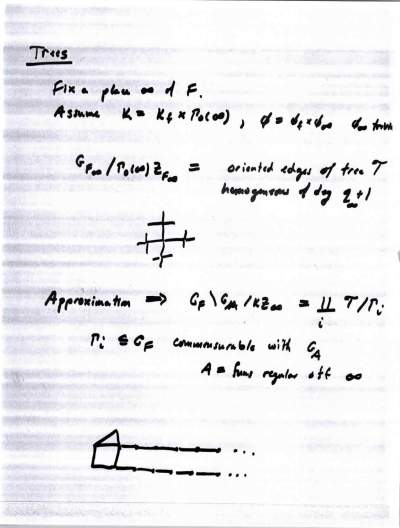 Trees
Fix a place ∞ of F.
Assume K = K_f × Γ₀(∞), φ = φ_f × φ_∞ φ_∞
G_{F∞} / Γ₀(∞) Z_{F∞} = oriented edges of tree T
homogeneous of deg q_∞+1
Approximation ⟹ G_F \ G_𝔸 / K Z_∞ = ∐_i T/Γ_i
Γ_i ⊆ G_F commensurable with G_A
A = funs regular off ∞